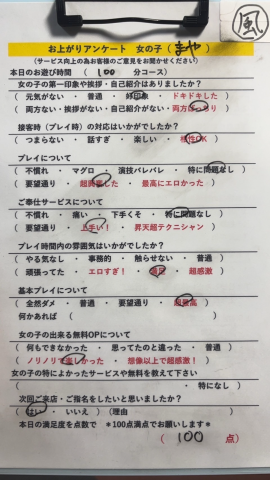 風
お上がりアンケート 女の子(まや)
(サービス向上の為お客様のご意見をお聞かせください)
本日のお遊び時間 ( 100 分コース)
女の子の第一印象や挨拶・自己紹介はありましたか?
( 元気がない ・ 普通 ・ 好印象 ・ ドキドキした )
( 両方ない・挨拶がない・自己紹介がない・両方ばっちり )
接客時(プレイ時)の対応はいかがでしたか?
( つまらない ・ 話すぎ ・ 楽しい ・ 相性OK )
プレイについて
( 不慣れ ・ マグロ ・ 演技バレバレ ・ 特に問題なし
( 要望通り ・ 超興奮した ・ 最高にエロかった )
ご奉仕サービスについて
( 不慣れ ・ 痛い ・ 下手くそ ・ 特に問題なし
( 要望通り ・ 上手い! ・ 昇天超テクニシャン )
プレイ時間内の雰囲気はいかがでしたか?
( やる気なし ・ 事務的 ・ 触らせない ・ 普通
( 頑張ってた ・ エロすぎ! ・ 満足 ・ 超感激 )
基本プレイについて
( 全然ダメ ・ 普通 ・ 要望通り ・ 超最高 )
何かあれば (
女の子の出来る無料OPについて
( 何もできなかった ・ 思ってたのと違った ・ 普通 )
( ノリノリで楽しかった ・ 想像以上で超感激! )
女の子の特によかったサービスや無料を教えて下さい
( ・ 特になし )
次回ご来店・ご指名をしたいと思いましたか?
( はい ・ いいえ )(理由 )
本日の満足度を点数で *100点満点でお願いします*
( 100 点)